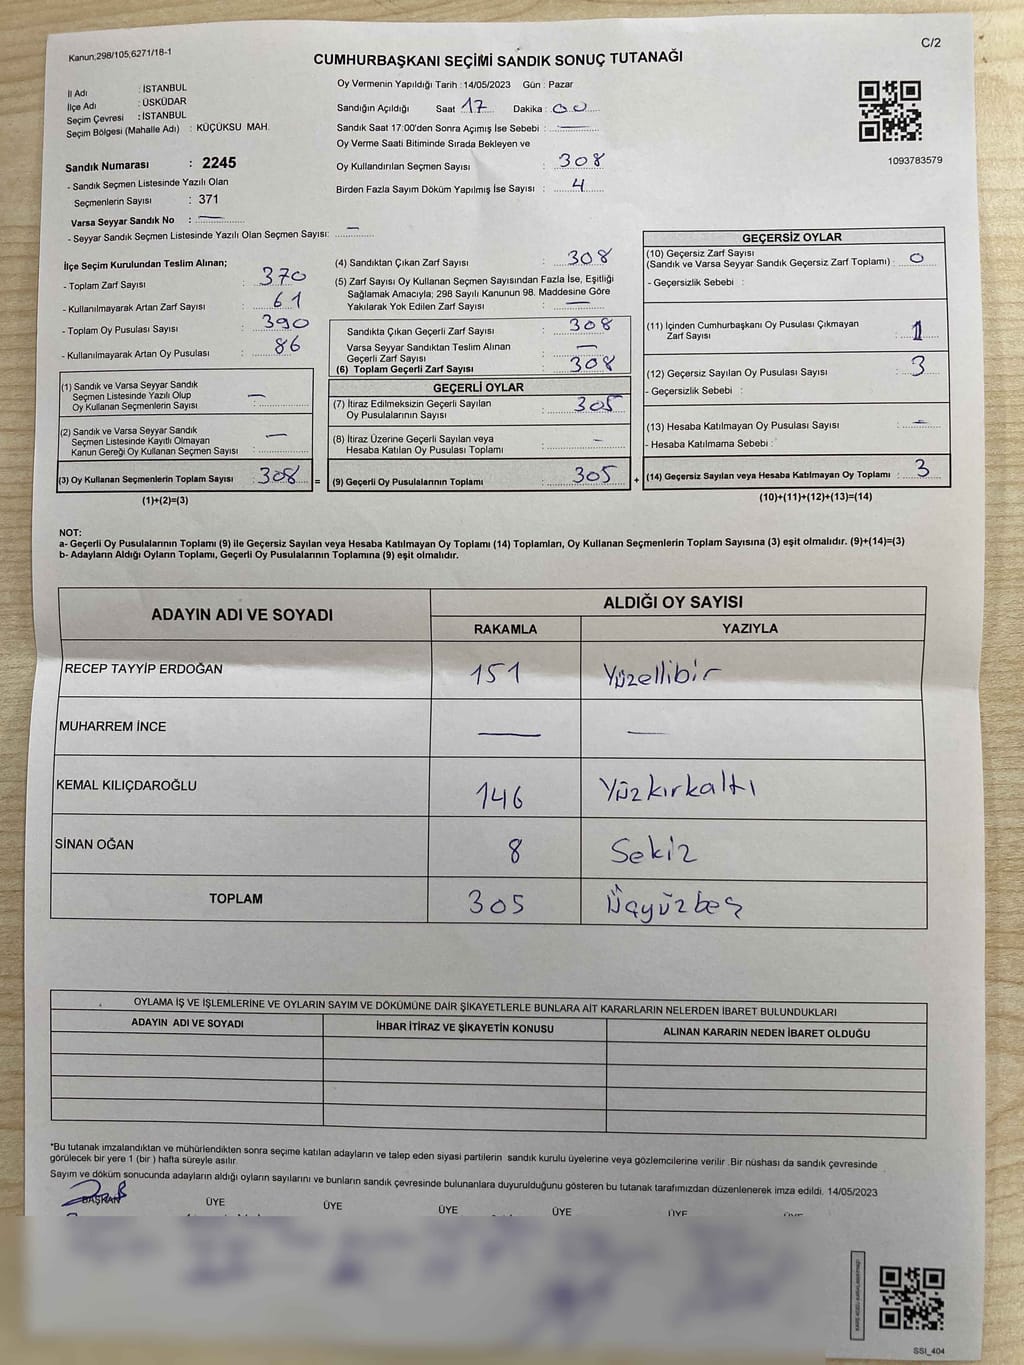 Kanun;298/105,6271/18-1
C/2
CUMHURBAŞKANI SEÇİMİ SANDIK SONUÇ TUTANAĞI
İl Adı : İSTANBUL
İlçe Adı : ÜSKÜDAR
Seçim Çevresi : İSTANBUL
Seçim Bölgesi (Mahalle Adı) : KÜÇÜKSU MAH.
Sandık Numarası : 2245
- Sandık Seçmen Listesinde Yazılı Olan
Seçmenlerin Sayısı : 371
Varsa Seyyar Sandık No : —
- Seyyar Sandık Seçmen Listesinde Yazılı Olan Seçmen Sayısı: —
Oy Vermenin Yapıldığı Tarih :14/05/2023 Gün : Pazar
Sandığın Açıldığı Saat 17 Dakika : 00
Sandık Saat 17:00'den Sonra Açımış İse Sebebi : —
Oy Verme Saati Bitiminde Sırada Bekleyen ve
Oy Kullandırılan Seçmen Sayısı : 308
Birden Fazla Sayım Döküm Yapılmış İse Sayısı : 4
1093783579
İlçe Seçim Kurulundan Teslim Alınan;
- Toplam Zarf Sayısı : 370
- Kullanılmayarak Artan Zarf Sayısı : 61
- Toplam Oy Pusulası Sayısı : 390
- Kullanılmayarak Artan Oy Pusulası : 86
(1) Sandık ve Varsa Seyyar Sandık
Seçmen Listesinde Yazılı Olup
Oy Kullanan Seçmenlerin Sayısı : —
(2) Sandık ve Varsa Seyyar Sandık
Seçmen Listesinde Kayıtlı Olmayan
Kanun Gereği Oy Kullanan Seçmen Sayısı : —
(3) Oy Kullanan Seçmenlerin Toplam Sayısı : 308 =
(1)+(2)=(3)
(4) Sandıktan Çıkan Zarf Sayısı : 308
(5) Zarf Sayısı Oy Kullanan Seçmen Sayısından Fazla İse, Eşitliği
Sağlamak Amacıyla; 298 Sayılı Kanunun 98. Maddesine Göre
Yakılarak Yok Edilen Zarf Sayısı : —
Sandıkta Çıkan Geçerli Zarf Sayısı : 308
Varsa Seyyar Sandıktan Teslim Alınan
Geçerli Zarf Sayısı : —
(6) Toplam Geçerli Zarf Sayısı : 308
GEÇERLİ OYLAR
(7) İtiraz Edilmeksizin Geçerli Sayılan
Oy Pusulalarının Sayısı : 305
(8) İtiraz Üzerine Geçerli Sayılan veya
Hesaba Katılan Oy Pusulası Toplamı : —
(9) Geçerli Oy Pusulalarının Toplamı : 305 +
GEÇERSİZ OYLAR
(10) Geçersiz Zarf Sayısı
(Sandık ve Varsa Seyyar Sandık Geçersiz Zarf Toplamı) : 0
- Geçersizlik Sebebi :
(11) İçinden Cumhurbaşkanı Oy Pusulası Çıkmayan
Zarf Sayısı : 1
(12) Geçersiz Sayılan Oy Pusulası Sayısı : 3
- Geçersizlik Sebebi :
(13) Hesaba Katılmayan Oy Pusulası Sayısı : —
- Hesaba Katılmama Sebebi :
(14) Geçersiz Sayılan veya Hesaba Katılmayan Oy Toplamı : 3
(10)+(11)+(12)+(13)=(14)
NOT:
a- Geçerli Oy Pusulalarının Toplamı (9) ile Geçersiz Sayılan veya Hesaba Katılmayan Oy Toplamı (14) Toplamları, Oy Kullanan Seçmenlerin Toplam Sayısına (3) eşit olmalıdır. (9)+(14)=(3)
b- Adayların Aldığı Oyların Toplamı, Geçerli Oy Pusulalarının Toplamına (9) eşit olmalıdır.
ADAYIN ADI VE SOYADI ALDIĞI OY SAYISI
RAKAMLA YAZIYLA
RECEP TAYYİP ERDOĞAN 151 Yüzellibir
MUHARREM İNCE — —
KEMAL KILIÇDAROĞLU 146 Yüzkırkaltı
SİNAN OĞAN 8 Sekiz
TOPLAM 305 Üçyüzbeş
OYLAMA İŞ VE İŞLEMLERİNE VE OYLARIN SAYIM VE DÖKÜMÜNE DAİR ŞİKAYETLERLE BUNLARA AİT KARARLARIN NELERDEN İBARET BULUNDUKLARI
ADAYIN ADI VE SOYADI İHBAR İTİRAZ VE ŞİKAYETİN KONUSU ALINAN KARARIN NEDEN İBARET OLDUĞU
*Bu tutanak imzalandıktan ve mühürlendikten sonra seçime katılan adayların ve talep eden siyasi partilerin sandık kurulu üyelerine veya gözlemcilerine verilir .Bir nüshası da sandık çevresinde
görülecek bir yere 1 (bir ) hafta süreyle asılır.
Sayım ve döküm sonucunda adayların aldığı oyların sayılarını ve bunların sandık çevresinde bulunanlara duyurulduğunu gösteren bu tutanak tarafımızdan düzenlenerek imza edildi. 14/05/2023
BAŞKAN ÜYE ÜYE ÜYE ÜYE ÜYE
SSI_404